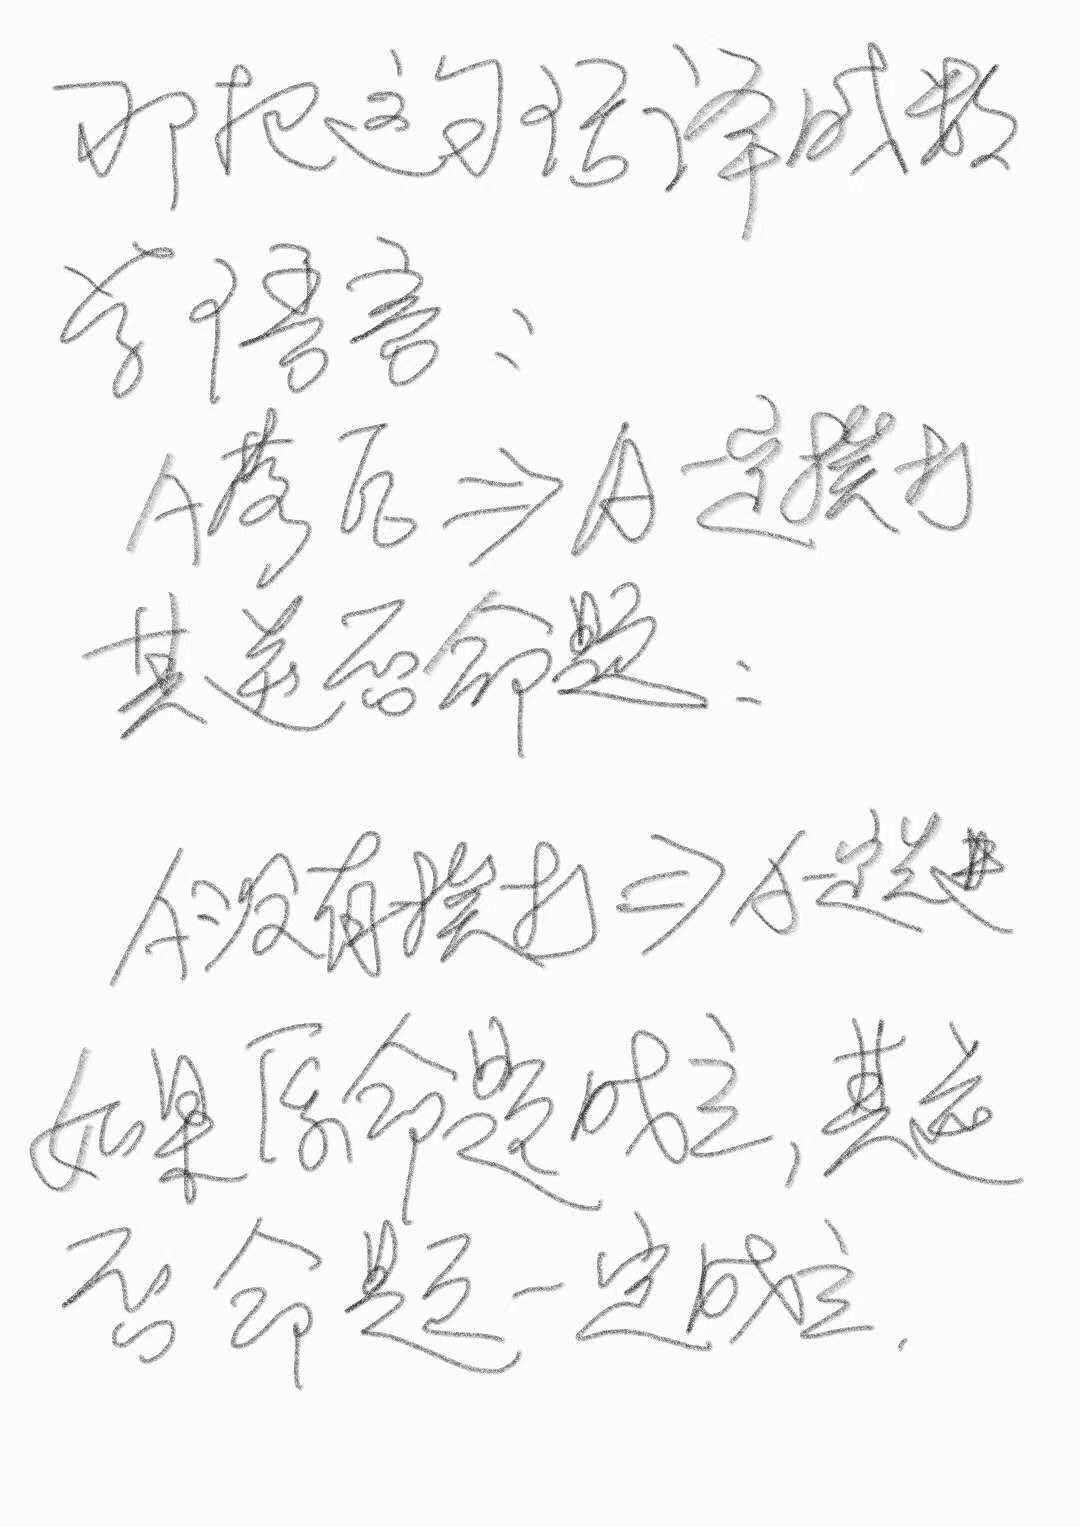 即把这句话译成数
学语言：
A落后⇒A一定挨打
其逆否命题：
A没有挨打⇒A一定先进
如果原命题成立，其逆
否命题一定成立．